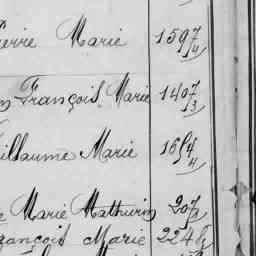 ierre Marie 1597/4
n François Marie 1407/3
illaume Marie 1654/4
e Marie Mathurin 207/2
rançois Marie 2246